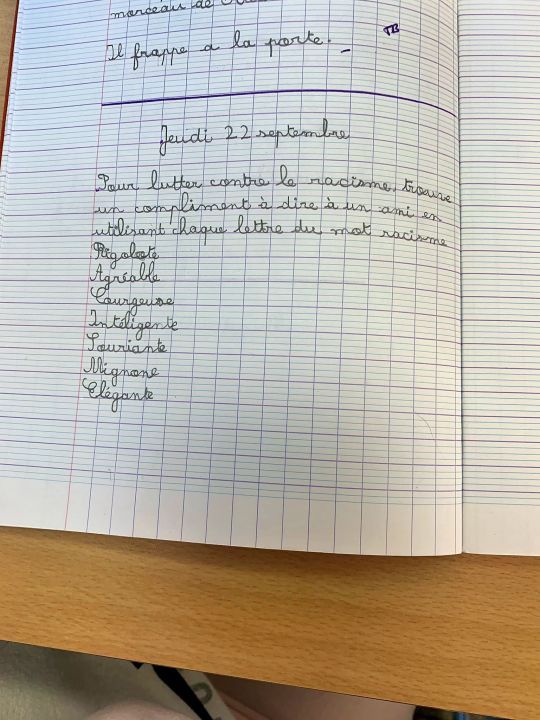 morceau de
Il frappe a la porte.
TB
Jeudi 22 septembre
Pour lutter contre le racisme, trouve
un compliment à dire à un ami en
utilisant chaque lettre du mot racisme
Rigolote
Agréable
Courgeuse
Inteligente
Souriante
Mignone
Elégante